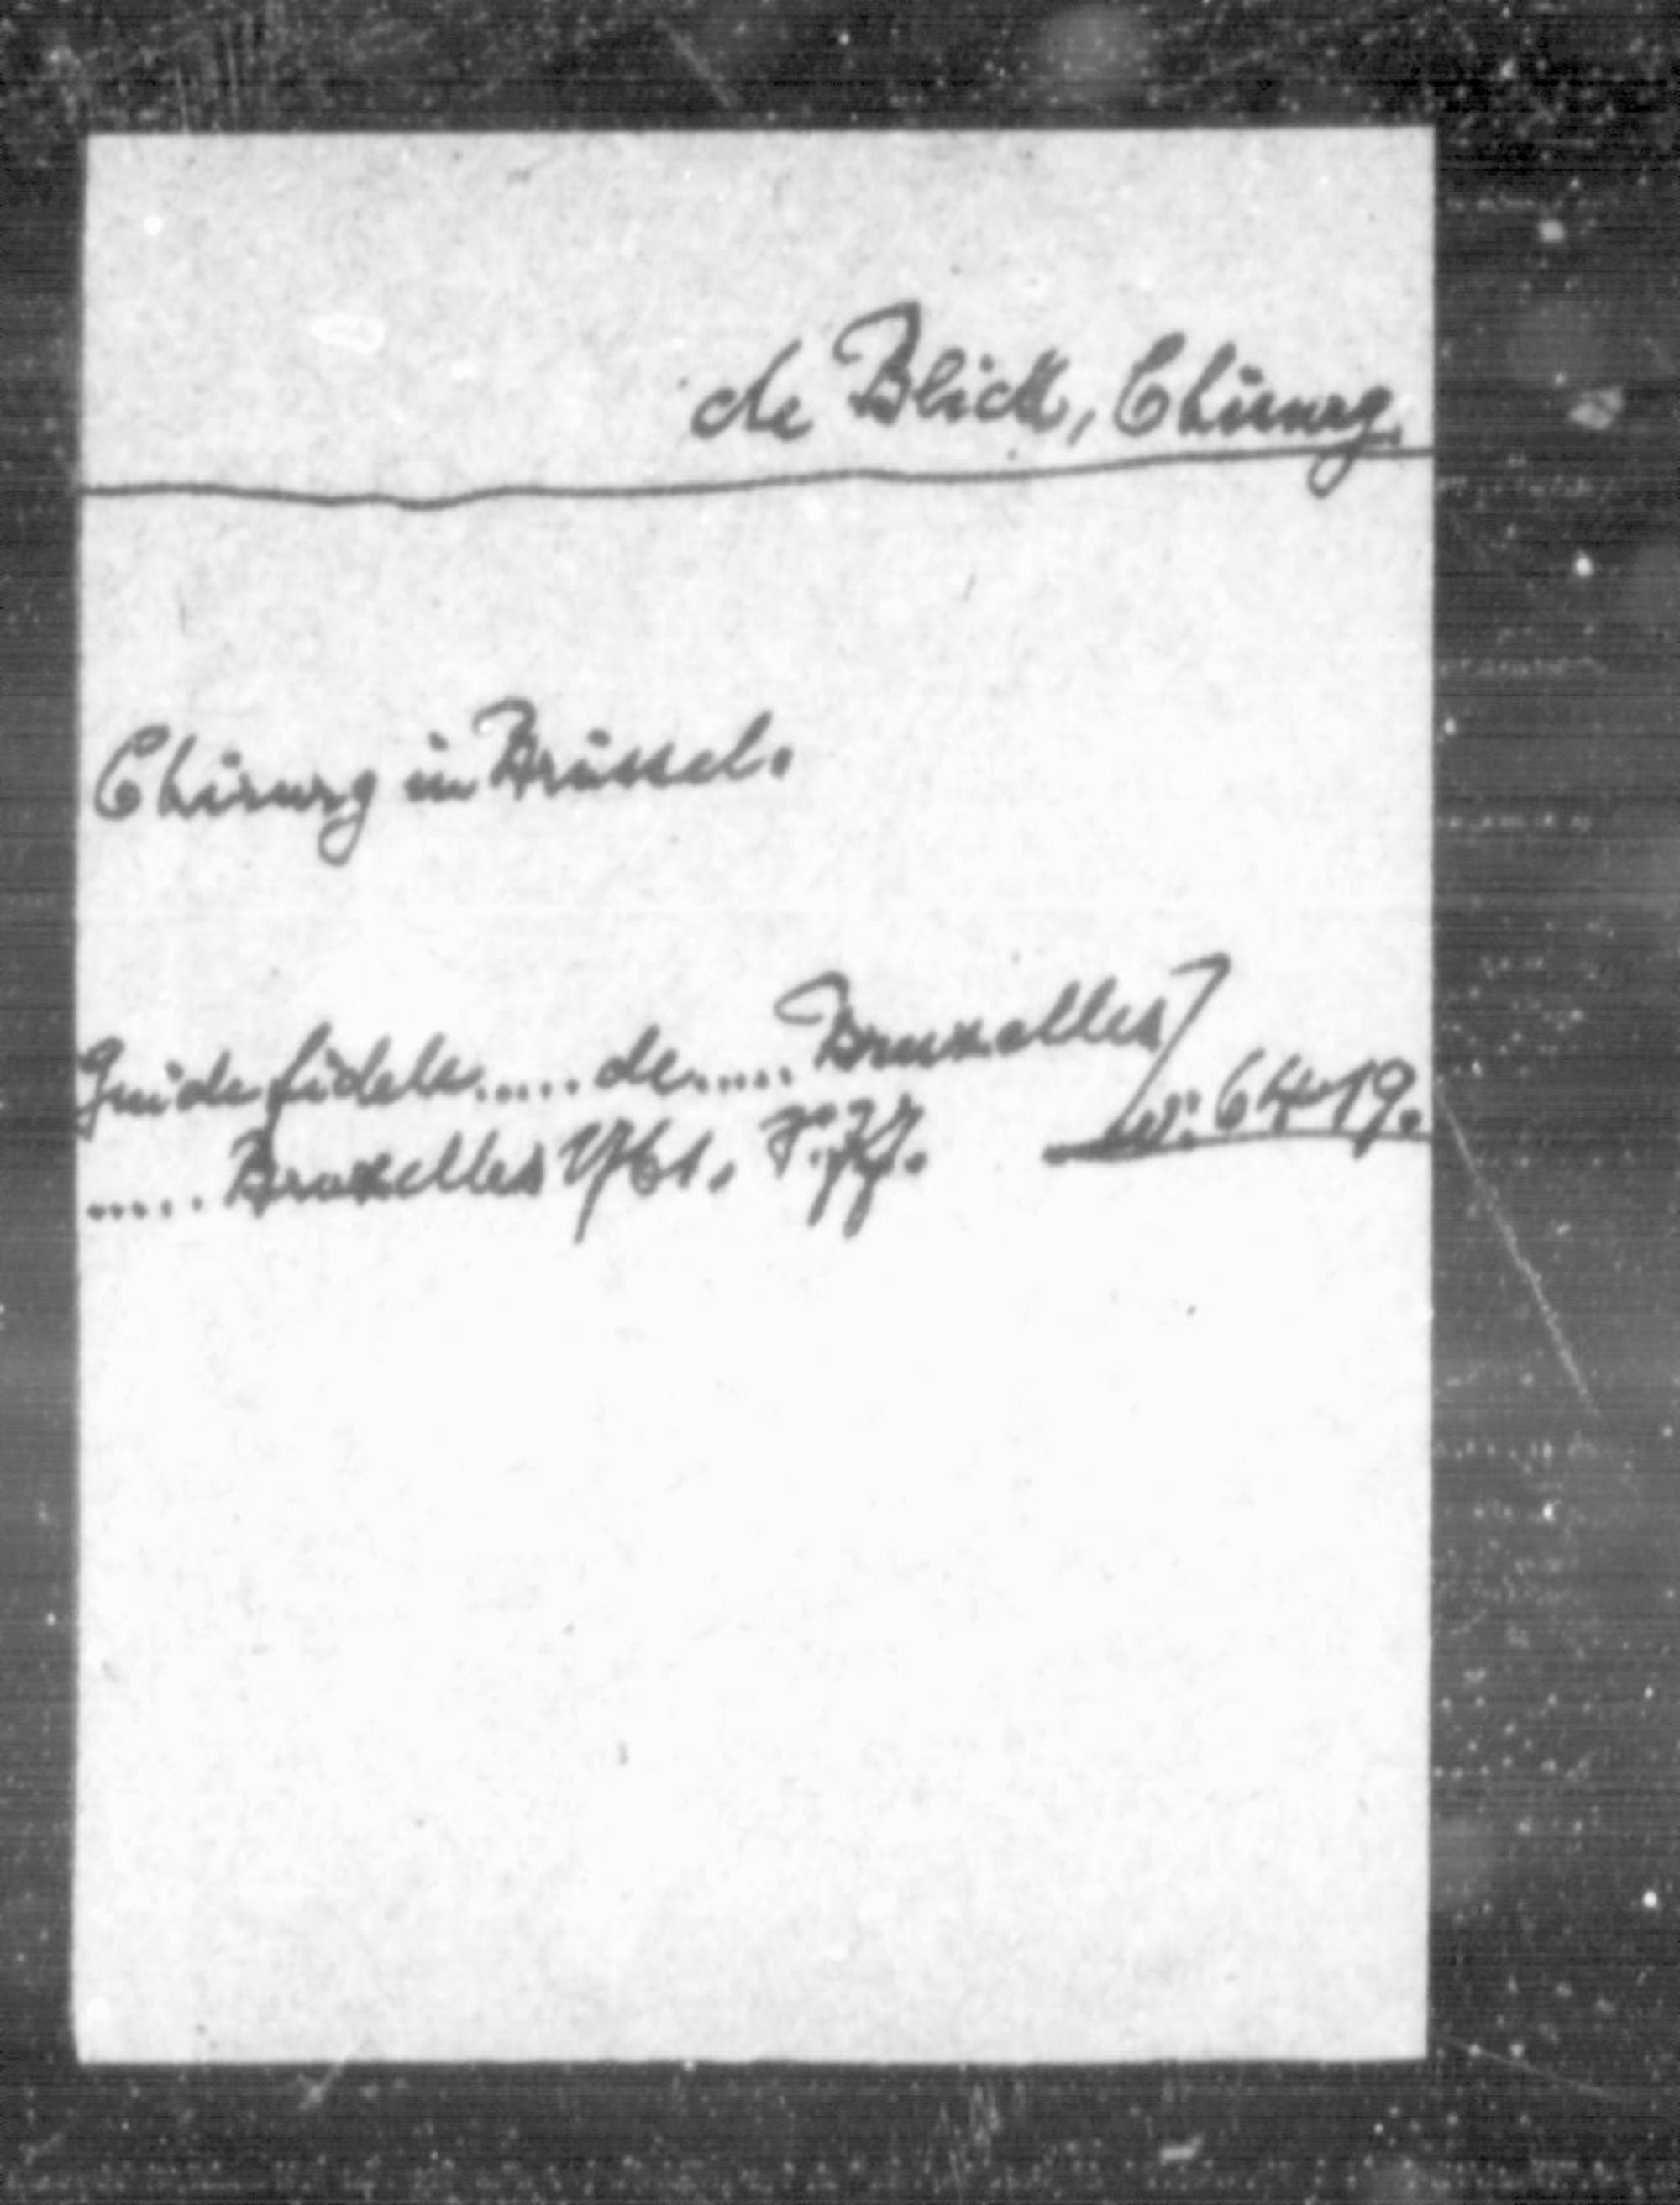 de Blick, Chirurg.
Chirurg in Brüssel.
Guide fidele.....de.....Bruxelles
..... Bruxelles 1761. S. 77. w: 6419.